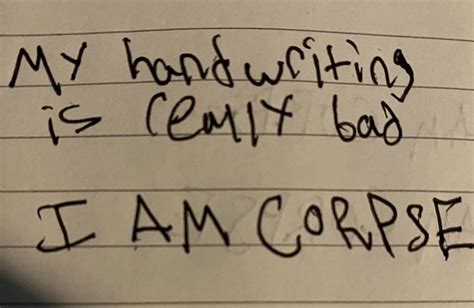 My handwriting
is really bad
I AM CORPSE